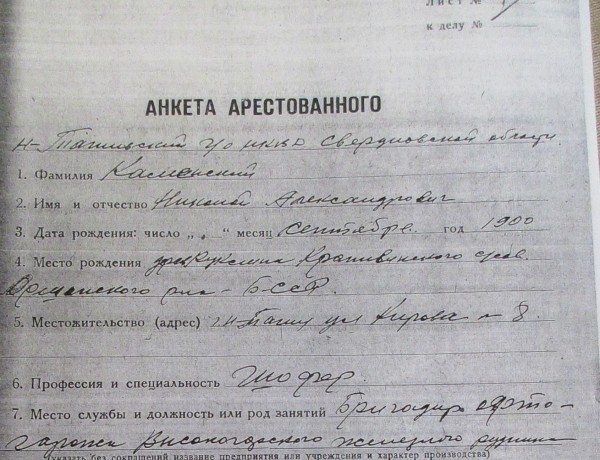 Лист №
к делу №
АНКЕТА АРЕСТОВАННОГО
Н-Тагильский г/о НКВД Свердловской области
1. Фамилия Каменский
2. Имя и отчество Николай Александрович
3. Дата рождения: число „ „ месяц сентябре год 1900
4. Место рождения Крапивенского
Оршанского р-на - БССР.
5. Местожительство (адрес) г. Н-Тагил ул Кирова - 8.
6. Профессия и специальность Шофер
7. Место службы и должность или род занятий Бригадир авто-
гаража Высокогорского железного рудника
(указать без сокращений название предприятия или учреждения и характер производства)